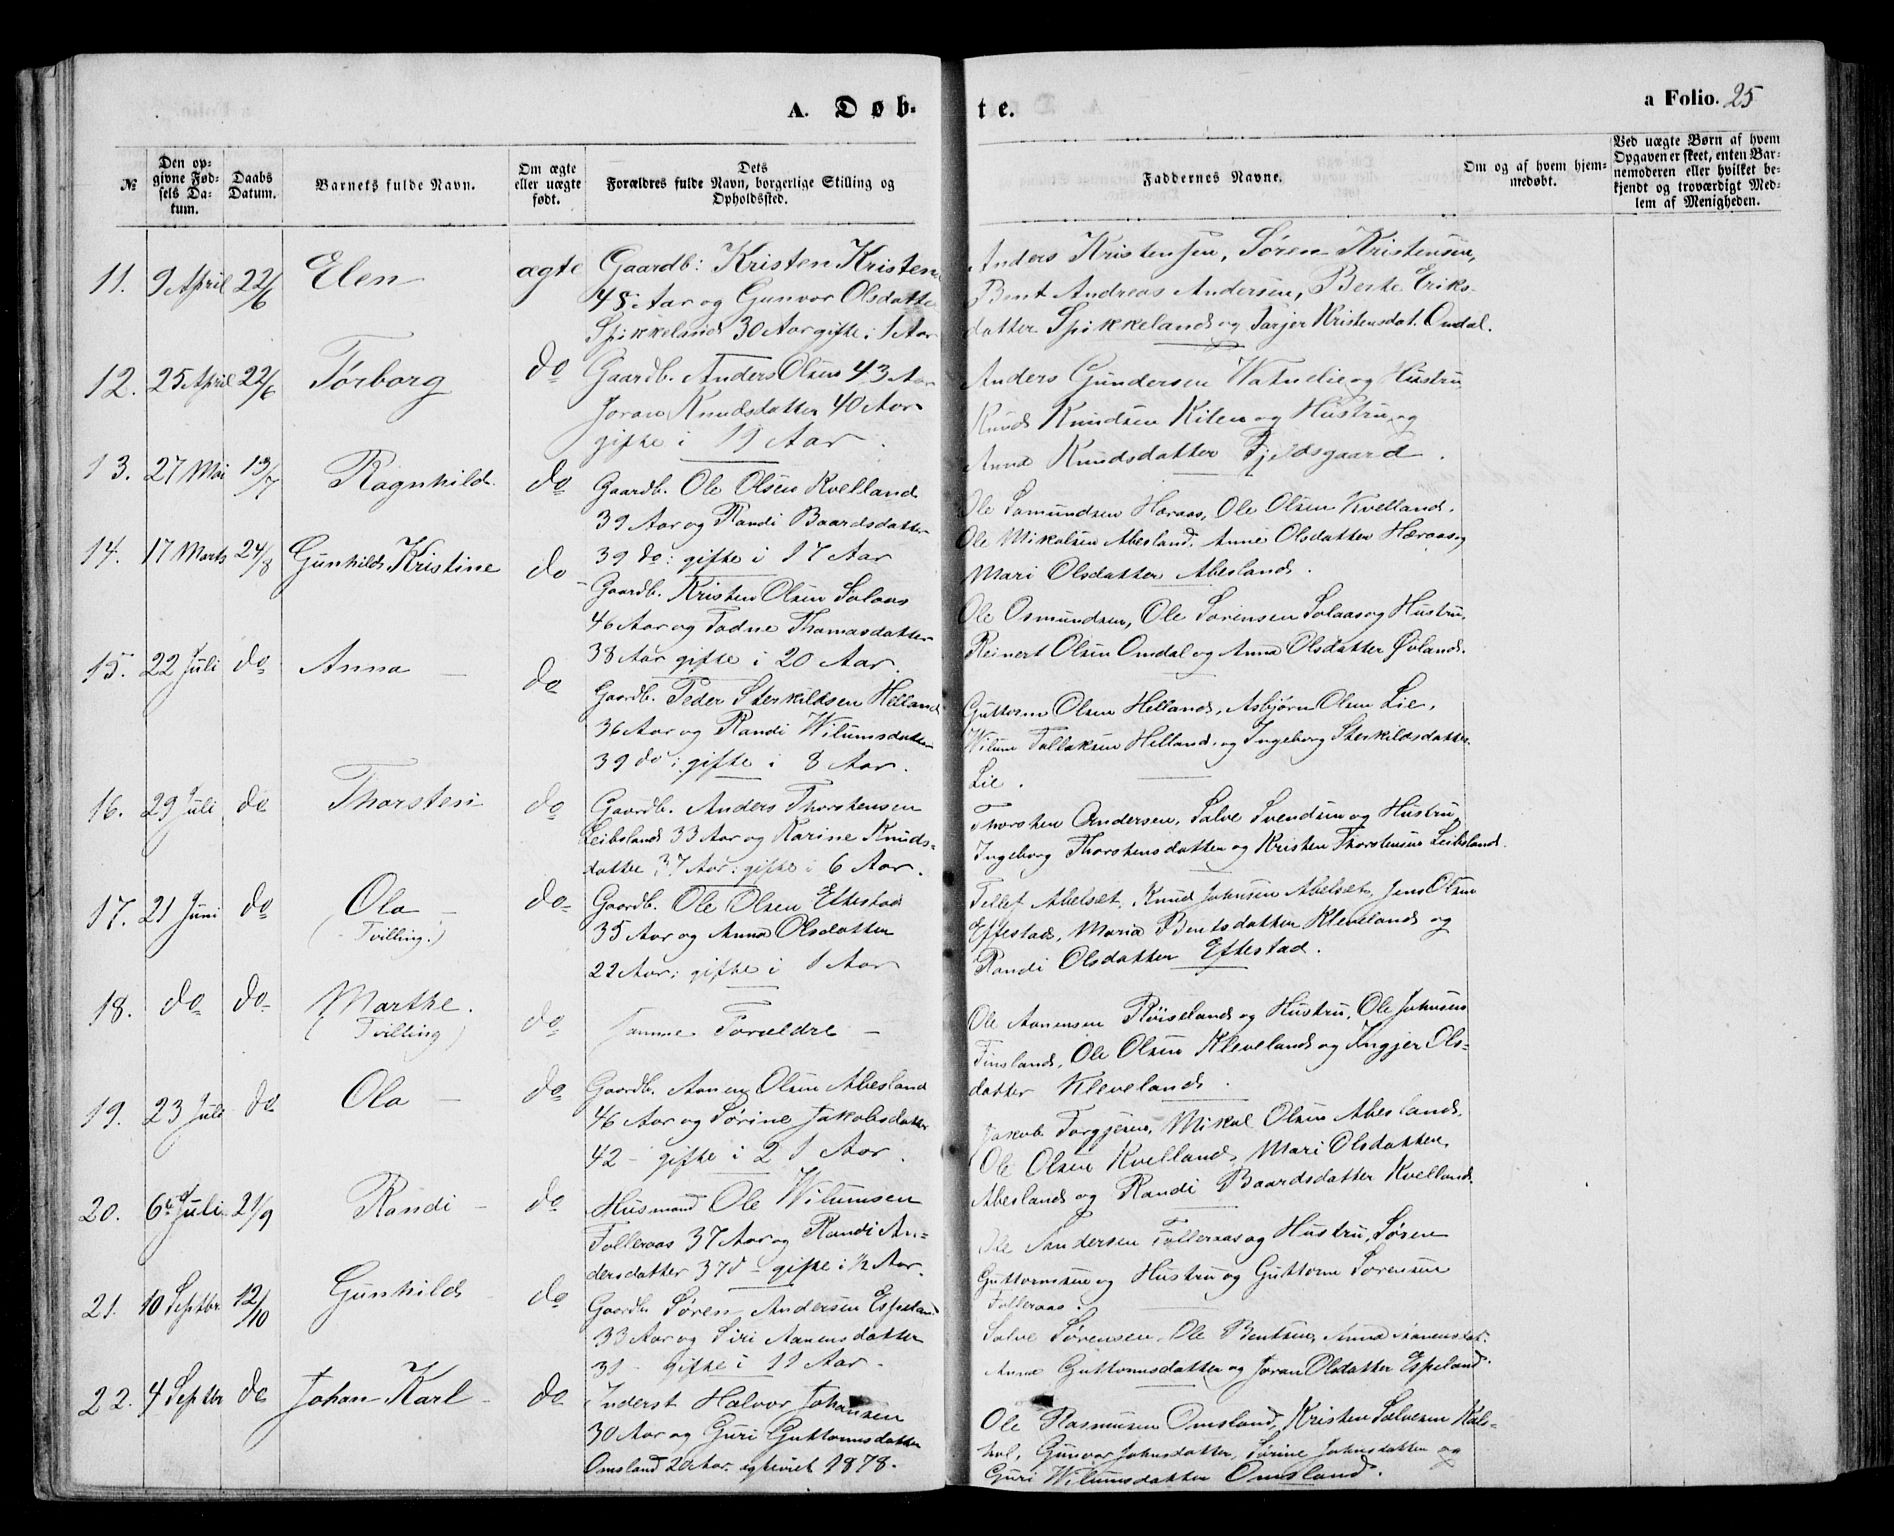 A. Døb-
te.
a Folio. 25
№
Den op-
givne Fød-
sels Da-
tum.
Daabs
Datum.
Barnets fulde Navn.
Om ægte
eller uægte
født.
Dets
Forældres fulde Navn, borgerlige Stilling og
Opholdssted.
Faddernes Navne.
Om og af hvem hjem-
medøbt.
Ved uægte Børn af hvem
Opgaven er skeet, enten Bar-
nemoderen eller hvilket be-
kjendt og troværdigt Med-
lem af Menigheden.
11. 9 April 22/6 Elen ægte
Gaardb: Kristen Kristens
45 Aar og Gunvor Olsdatte
Spikkeland 30 Aar gifte i 1 Aar
Anders Kristensen, Søren Kristensen,
Bent Andreas Andersen, Berte Eriks-
datter Spikkeland og Tarjer Kristensdat. Omdal.
12. 25 April 22/6 Torborg do
Gaardb. Anders Olsen 43 Aar
Joran Knudsdatter 40 Aar
gifte i 19 Aar.
Anders Gundersen Vatnelie og Hustru
Knud Knudsen Kilen og Hustru og
Anna Knudsdatter Fjeldsgaard.
13. 27 Mai 13/7 Ragnhild. do
Gaardb. Ole Olsen Kvelland
39 Aar og Randi Baardsdatter
39 do: gifte i 17 Aar
Ole Samundsen Hæraas, Ole Olsen Kvelland,
Ole Mikalsen Abesland, Anne Olsdatter Hæraas og
Mari Olsdatter Abesland.
14. 17 Marts 24/8 Gunhild Kristine do
Gaardb. Kristen Olsen Solaas
46 Aar og Todne Thomasdatter
38 Aar gifte i 20 Aar.
Ole Osmundsen, Ole Sorensen Solaas og Hustru,
Reinert Olsen Omdal og Anna Olsdatter Øvland.
15. 22 Juli do Anna – do
Gaardb. Peder Sterkildsen Helland
36 Aar og Randi Wilumsdatter
39 do: gifte i 8 Aar.
Guttorm Olsen Helland, Asbjørn Olsen Lie,
Wilum Tallaksen Helland, og Ingeborg Sterkildsdatter
Lie.
16. 29 Juli do Thorsten do
Gaardb. Anders Thorstensen
Leibsland 33 Aar og Karine Knuds-
datter 37 Aar: gifte i 6 Aar.
Thorsten Andersen, Salve Svendsen og Hustru
Ingeborg Thorstensdatter og Kristen Thorstensen Leibsland.
17. 21 Juni do Ola – do
(Tvilling.)
Gaardb. Ole Olsen Eftestad
35 Aar og Anna Olsdatter
22 Aar: gifte i 1 Aar
Tellef Abelset, Knud Johnsen Abelset, Jens Olsen
Eftestad, Maria Bentsdatter Kleveland og
Randi Olsdatter Eftestad.
18. do do Marthe. do
(Tvilling)
Samme Forældre –
Ole Aanensen Røiseland og Hustru, Ole Johnsen
Finsland, Ole Olsen Kleveland og Ingjer Ols-
datter Kleveland.
19. 23 Juli do Ola – do
Gaardb. Aanen Olsen Abesland
46 Aar og Sørine Jakobsdatter
42 – gifte i 21 Aar.
Jakob Torgjersen, Mikal Olsen Abesland,
Ole Olsen Kvelland, Mari Olsdatter
Abesland og Randi Baardsdatter Kvelland.
20. 6te Juli 21/9 Randi – do
Husmand Ole Wilumsen
Folleraas 37 Aar og Randi An-
dersdatter 37 d – gifte i ½ Aar.
Ole Andersen Folleraas og Hustru, Søren
Guttormsen og Hustru og Guttorm Sorensen
Folleraas.
21. 10 Septbr 12/10 Gunhild do
Gaardb. Søren Andersen Espeland
33 Aar og Siri Aanensdatter
31 – gifte i 11 Aar.
Salve Sørensen, Ole Bentsen, Anna Aanensdat.
Anne Guttormsdatter og Joran Olsdatter Espeland.
22. 4 Septbr do Johan Karl – do
Inderst Halvor Johansen
30 Aar og Guri Guttormsdatter
Omsland 20 Aar. egteviet 1878.
Ole Rasmusen Omsland, Kristen Salvesen Kals-
hol, Gunvor Johnsdatter, Sørine Johnsdatter og
Guri Wilumsdatter Omsland.